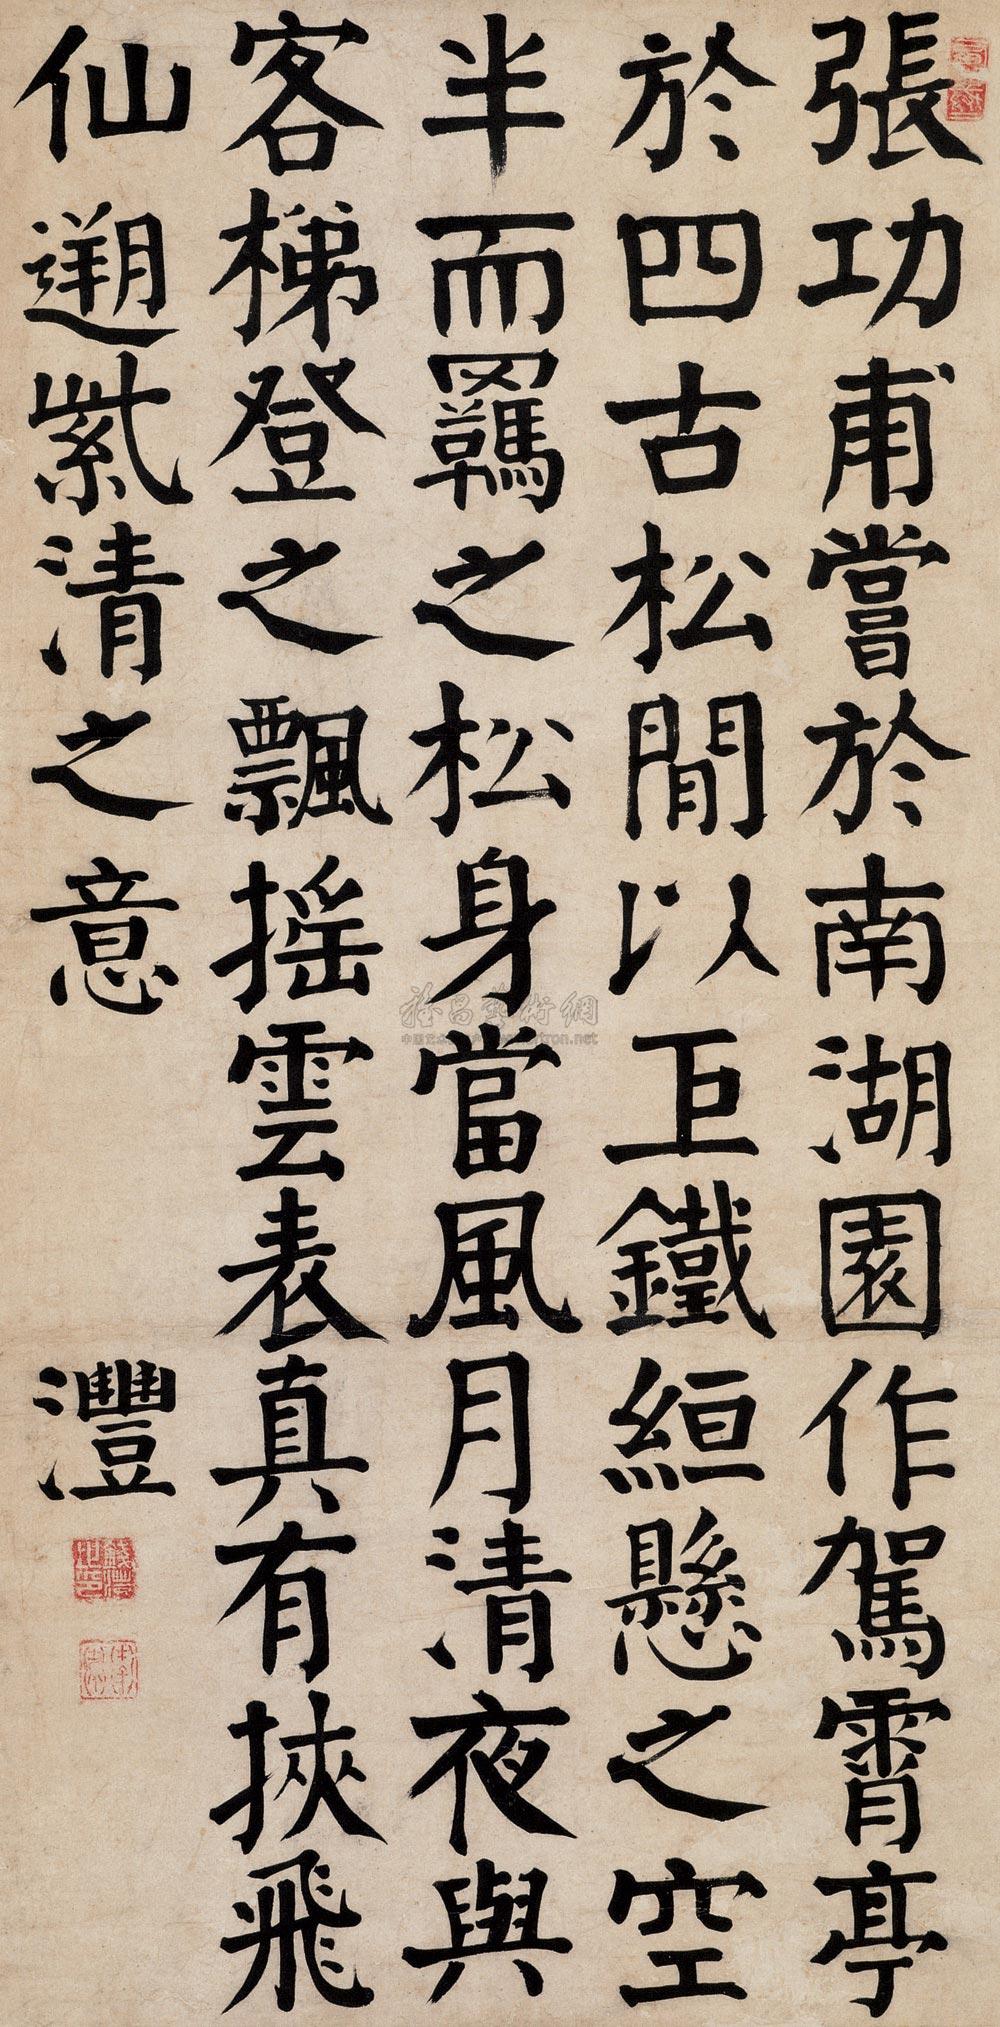 張功甫嘗於南湖園作駕霄亭
於四古松間以巨鐵絙懸之空
半而羈之松身當風月清夜與
客梯登之飄摇雲表真有挾飛
仙遡紫清之意
灃